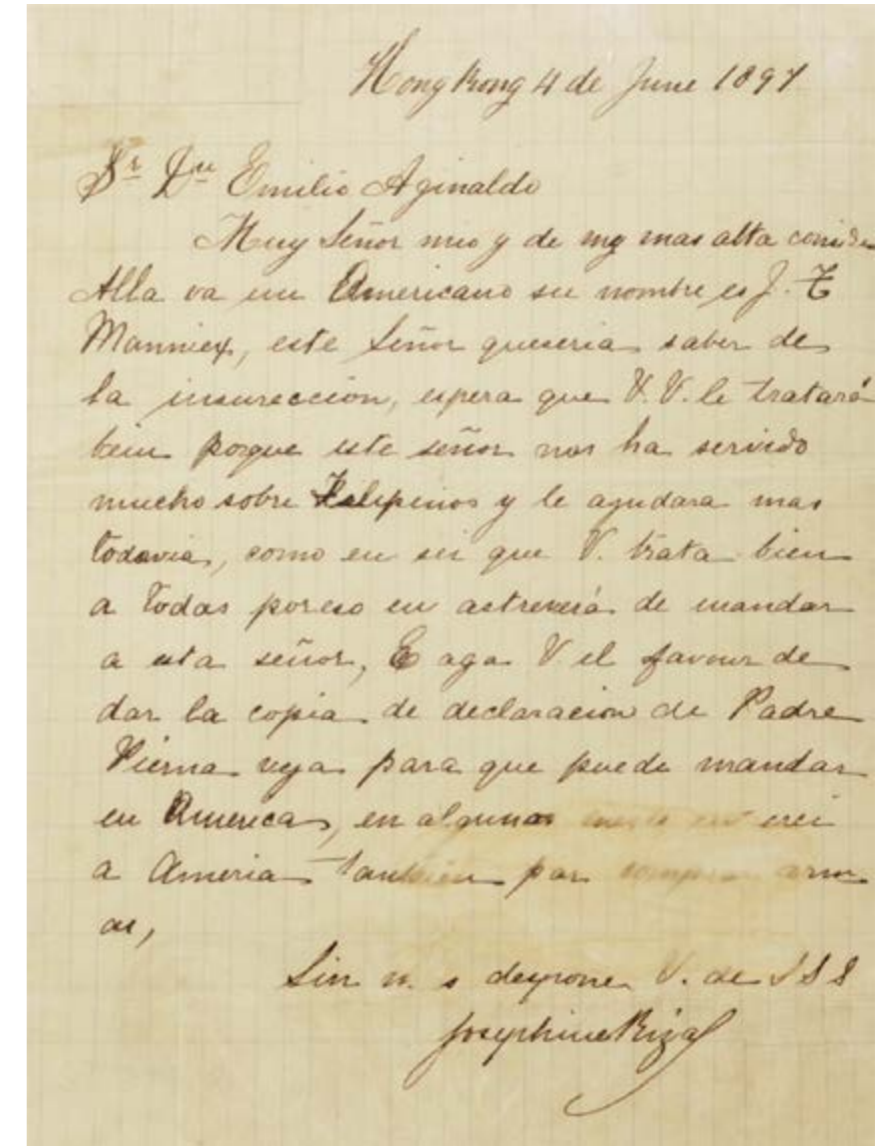 Hong Kong 4 de June 1897
Sr Dn Emilio Aginaldo
Muy Señor mio y de my mas alta conside
Alla va un Americano su nombre es J. T
Manniex, este Señor queseria saber de
la insureccion, espera que V. V. le tratará
bein porque este señor nos ha servido
mucho sobre Felipinos y le ayudara mas
todavia, como en sei que V. trata bien
a todas por eso en astreverá de mandar
a esta señor, E aga V el favour de
dar la copia de declaracion de Padre
Pierna veja para que puede mandar
en America, en algunos irei
a Ameria tambien par comprar arm
as,
Sin m s despone V. de S S S
Josephine Rizal